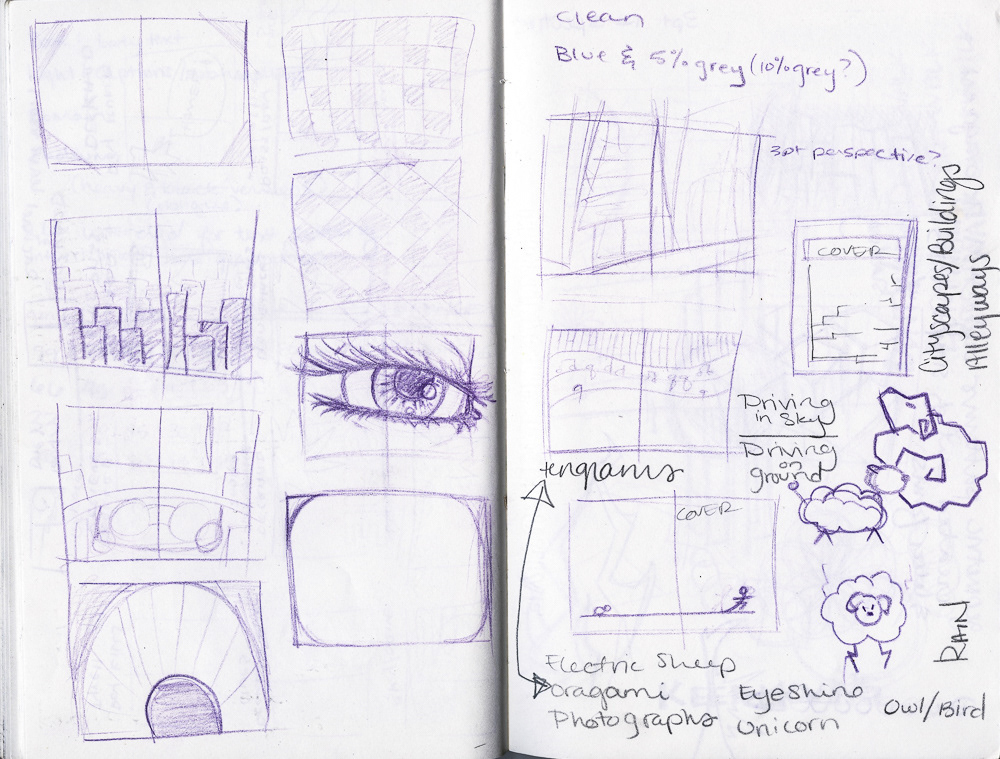 Clean
Blue & 5% grey (10% grey?)
3pt perspective?
COVER
Cityscapes/Buildings
Alleyways
Driving
in Sky
Driving
on
ground
tengrams
COVER
RAIN
Electric Sheep
oragami
Photographs
EyeShine
Unicorn
Owl/Bird